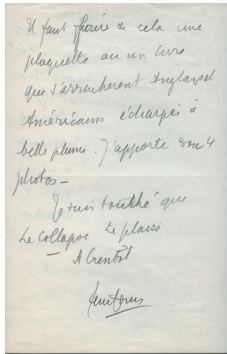 Il faut faire de cela une
plaquette ou un livre
que s'arracheront Anglais et
Américains écharpés à
belle plume. J'apporte 4
photos —
Je suis touché que
Le Collapse te plaise.
— A bientôt